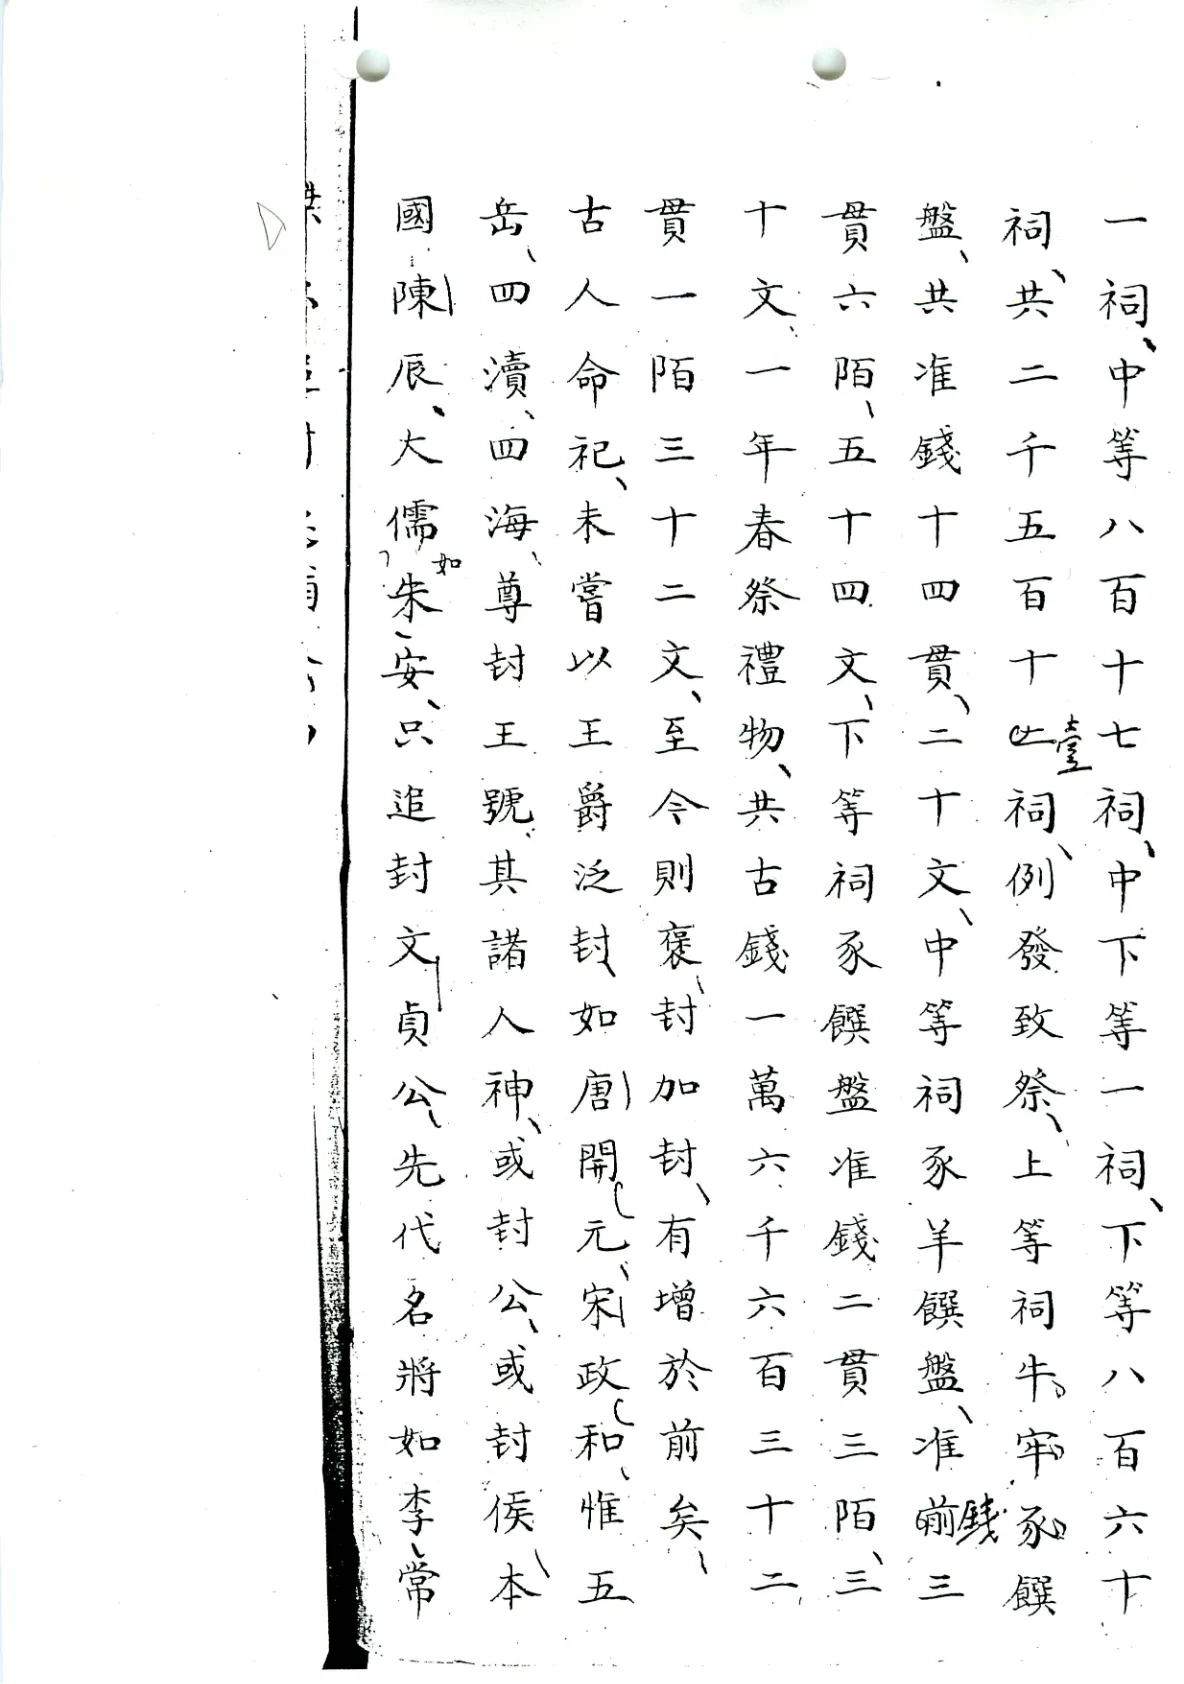 一祠中等八百十七祠中下等一祠下等八百六十
祠共二千五百十壹祠例發致祭上等祠牛牢豕饌
盤共准錢十四貫二十文中等祠豕羊饌盤准錢三
貫六陌五十四文下等祠豕饌盤准錢二貫三陌三
十文一年春祭禮物共古錢一萬六千六百三十二
貫一陌三十二文至今則褒封加封有增於前矣
古人命祀未嘗以王爵泛封如唐開元宋政和惟五
岳四瀆四海尊封王號其諸人神或封公或封侯本
國陳辰大儒如朱安只追封文貞公先代名將如李常